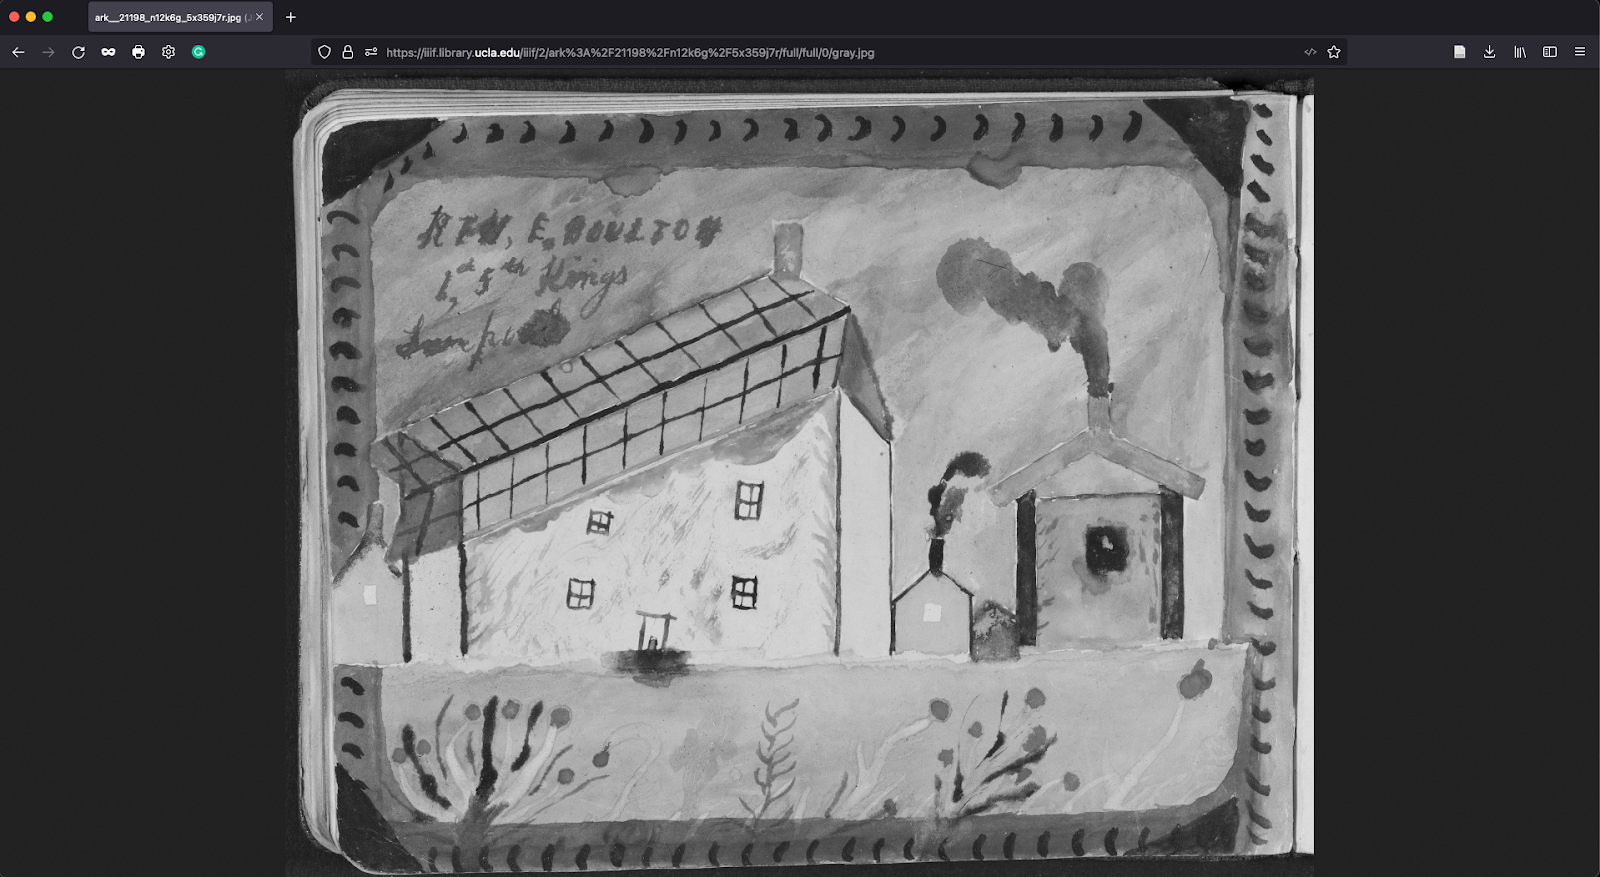 ark__21198_n12k6g_5x359j7r.jpg (J
https://iiif.library.ucla.edu/iiif/2/ark%3A%2F21198%2Fn12k6g%2F5x359j7r/full/full/0/gray.jpg
E. BOULTON
5th Kings